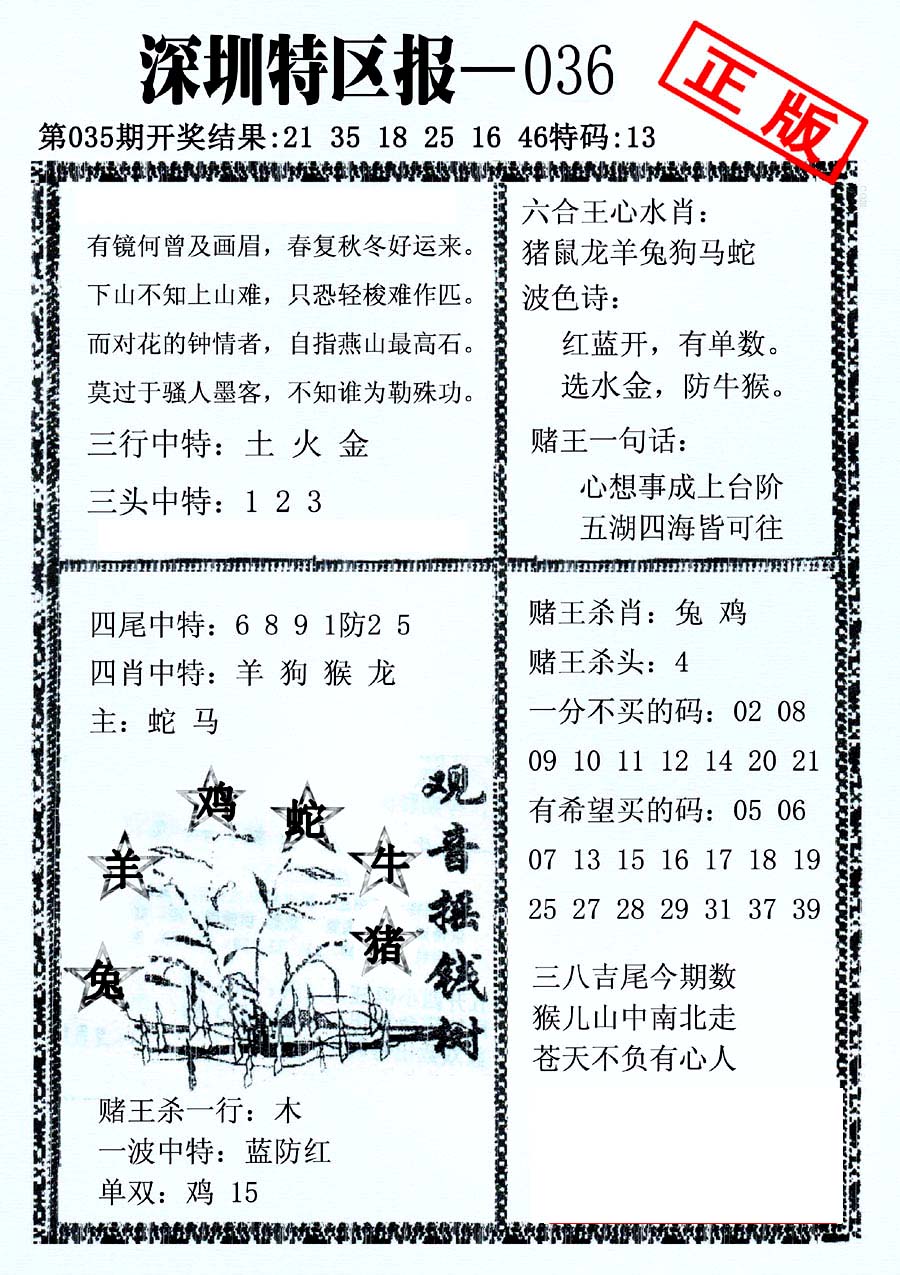 深圳特区报—036
正版
第035期开奖结果:21 35 18 25 16 46特码:13
有镜何曾及画眉，春复秋冬好运来。
下山不知上山难，只恐轻梭难作匹。
而对花的钟情者，自指燕山最高石。
莫过于骚人墨客，不知谁为勒殊功。
三行中特：土 火 金
三头中特：1 2 3
六合王心水肖：
猪鼠龙羊兔狗马蛇
波色诗：
红蓝开，有单数。
选水金，防牛猴。
赌王一句话：
心想事成上台阶
五湖四海皆可往
四尾中特：6 8 9 1防2 5
四肖中特：羊 狗 猴 龙
主：蛇 马
鸡
蛇
羊
牛
猪
兔
观音摇钱树
赌王杀一行：木
一波中特：蓝防红
单双：鸡 15
赌王杀肖：兔 鸡
赌王杀头：4
一分不买的码：02 08
09 10 11 12 14 20 21
有希望买的码：05 06
07 13 15 16 17 18 19
25 27 28 29 31 37 39
三八吉尾今期数
猴儿山中南北走
苍天不负有心人